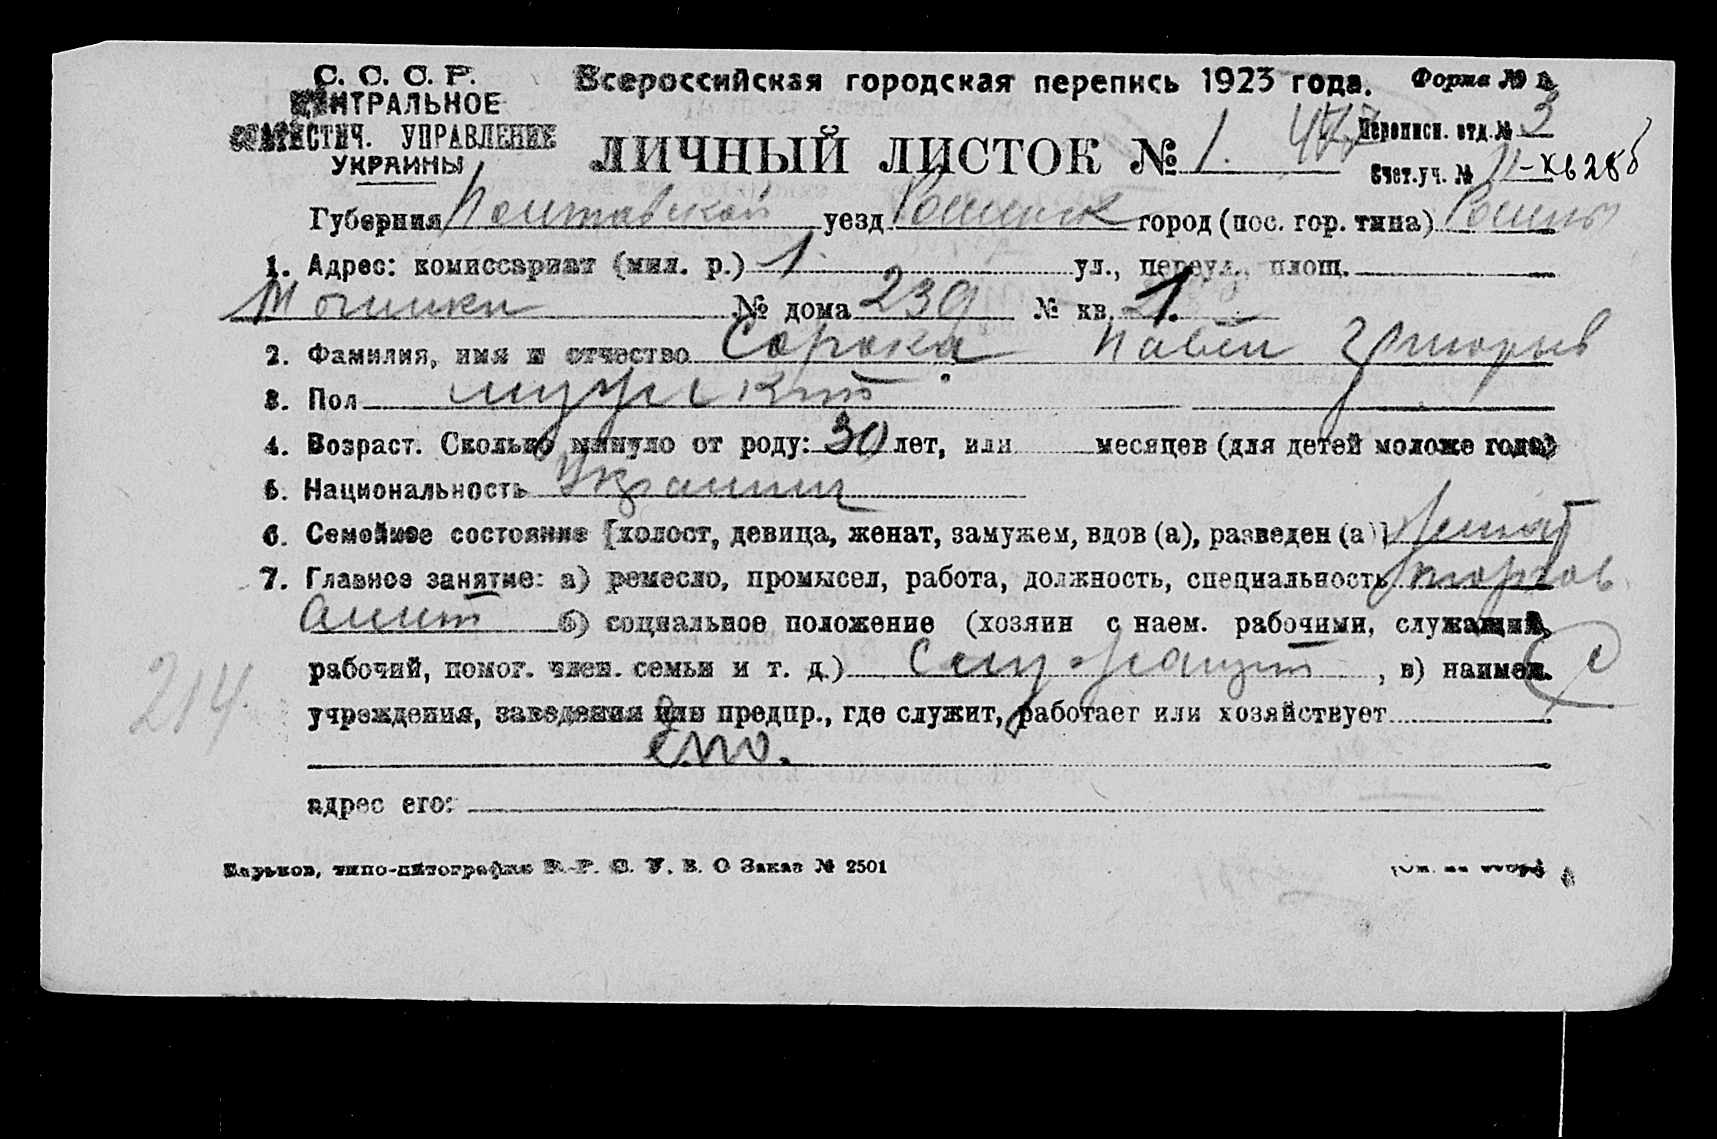 С. С. С. Р.
ЦЕНТРАЛЬНОЕ
СТАТИСТИЧ. УПРАВЛЕНИЕ
УКРАИНЫ
Всероссийская городская перепись 1923 года. Форма №
ЛИЧНЫЙ ЛИСТОК № 1. 477
Переписн. отд. № 3
Счет. уч. № 11
Губерния Полтавской уезд Роменск город (пос. гор. типа) Ромны
1. Адрес: комиссариат (мил. р.) 1 ул., переул., площ.
№ дома 239 № кв. 1.
2. Фамилия, имя и отчество Сорока Павел Григорьев
3. Пол мужской
4. Возраст. Сколько минуло от роду: 30 лет, или месяцев (для детей моложе года)
5. Национальность Украинец
6. Семейное состояние [холост, девица, женат, замужем, вдов (а), разведен (а)] женат
7. Главное занятие: а) ремесло, промысел, работа, должность, специальность торгов
агент б) социальное положение (хозяин с наем. рабочими, служащий,
рабочий, помог. член. семьи и т. д.) Служащий , в) наимен.
учреждения, заведения или предпр., где служит, работает или хозяйствует
ЕПО.
адрес его:
Харьков, типо-литография В. Заказ № 2501
214